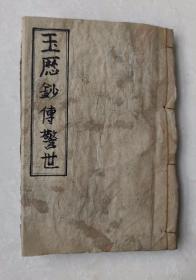 玉歷鈔傳警世